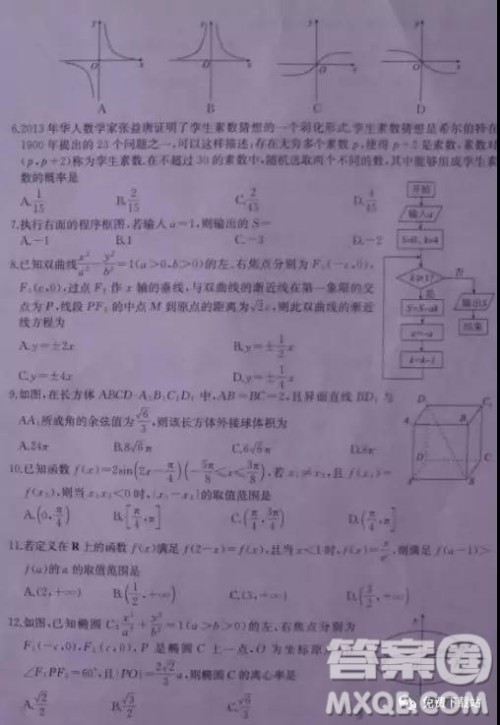 A B C D
6.2013年华人数学家张益唐证明了孪生素数猜想的一个弱化形式.孪生素数猜想是希尔伯特在
1900年提出的23个问题之一,可以这样描述:存在无穷多个素数p,使得p+2是素数,素数对
(p,p+2)称为孪生素数.在不超过30的素数中,随机选取两个不同的数,其中能够组成孪生素
数的概率是
A.1/15 B.2/15 C.2/15 D.4/15
开始
输入a
7.执行右面的程序框图,若输入a=1,则输出的S=
A.-1 B.1 C.-3 D.-2
8.已知双曲线x²/a²-y²/b²=1(a>0,b>0)的左、右焦点分别为F₁(-c,0),
F₂(c,0),过点F₂作x轴的垂线,与双曲线的渐近线在第一象限的交
点为P,线段PF₂的中点M到原点的距离为√2c,则此双曲线的渐近
线方程为
A.y=±2x B.y=±1/2x
C.y=±4x D.y=±1/4x
是
否
S=S-ak
a=-a
k=k-1
输出S
结束
9.如图,在长方体ABCD-A₁B₁C₁D₁中,AB=BC=2,且异面直线BD₁与
AA₁所成角的余弦值为√6/3,则该长方体外接球体积为
A.24π B.8√6π C.6√6π D.8π
10.已知函数f(x)=2sin(2x-π/4)(-5π/8≤x≤3π/8),若x₁≠x₂,且f(x₁)=
f(x₂),则当x₁x₂<0时,|x₁-x₂|的取值范围是
A.(0,π/4) B.[π/4,π] C.(π/4,3π/4) D.(π/4,π]
11.若定义在R上的函数f(x)满足f(2-x)=f(x),且当x<1时,f(x)=x/eˣ,则满足f(a-1)>
f(a)的a的取值范围是
A.(2,+∞) B.(1/2,+∞) C.(3,+∞) D.(3/2,+∞)
12.如图,已知椭圆C:x²/a²+y²/b²=1(a>b>0)的左、右焦点分别为
F₁(-c,0),F₂(c,0),P是椭圆C上一点,O为坐标原
∠F₁PF₂=60°,且|PO|=2√2/3a,则椭圆C的离心率是
A.√2/2 B.√2/3 C.√6/3
答案卷
MXQE.COM
免费下载站